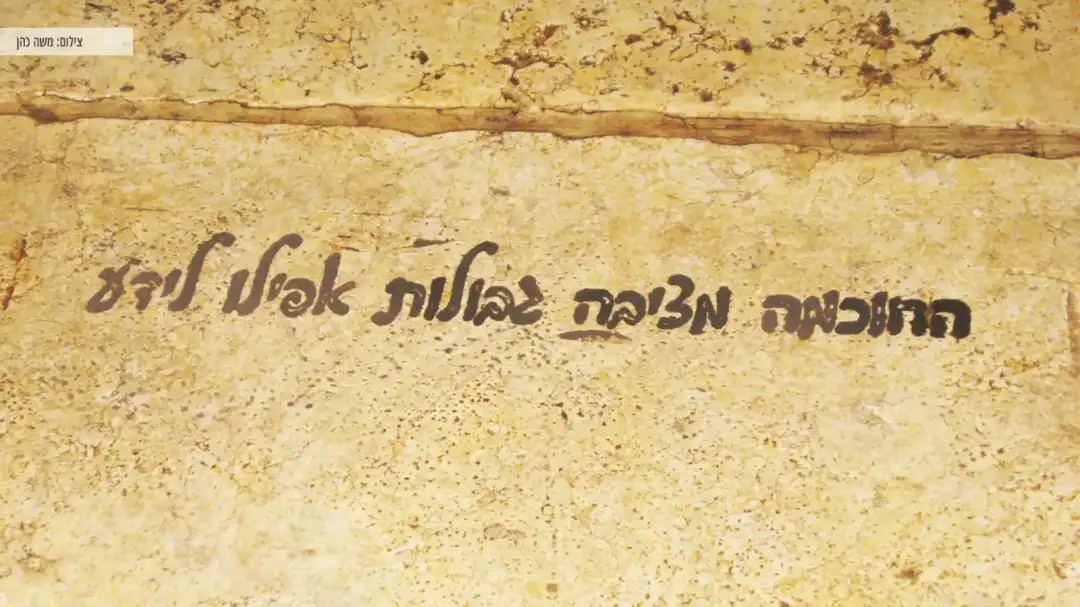 צילום: משה כהן
החוכמה מציבה גבולות אפילו לידע